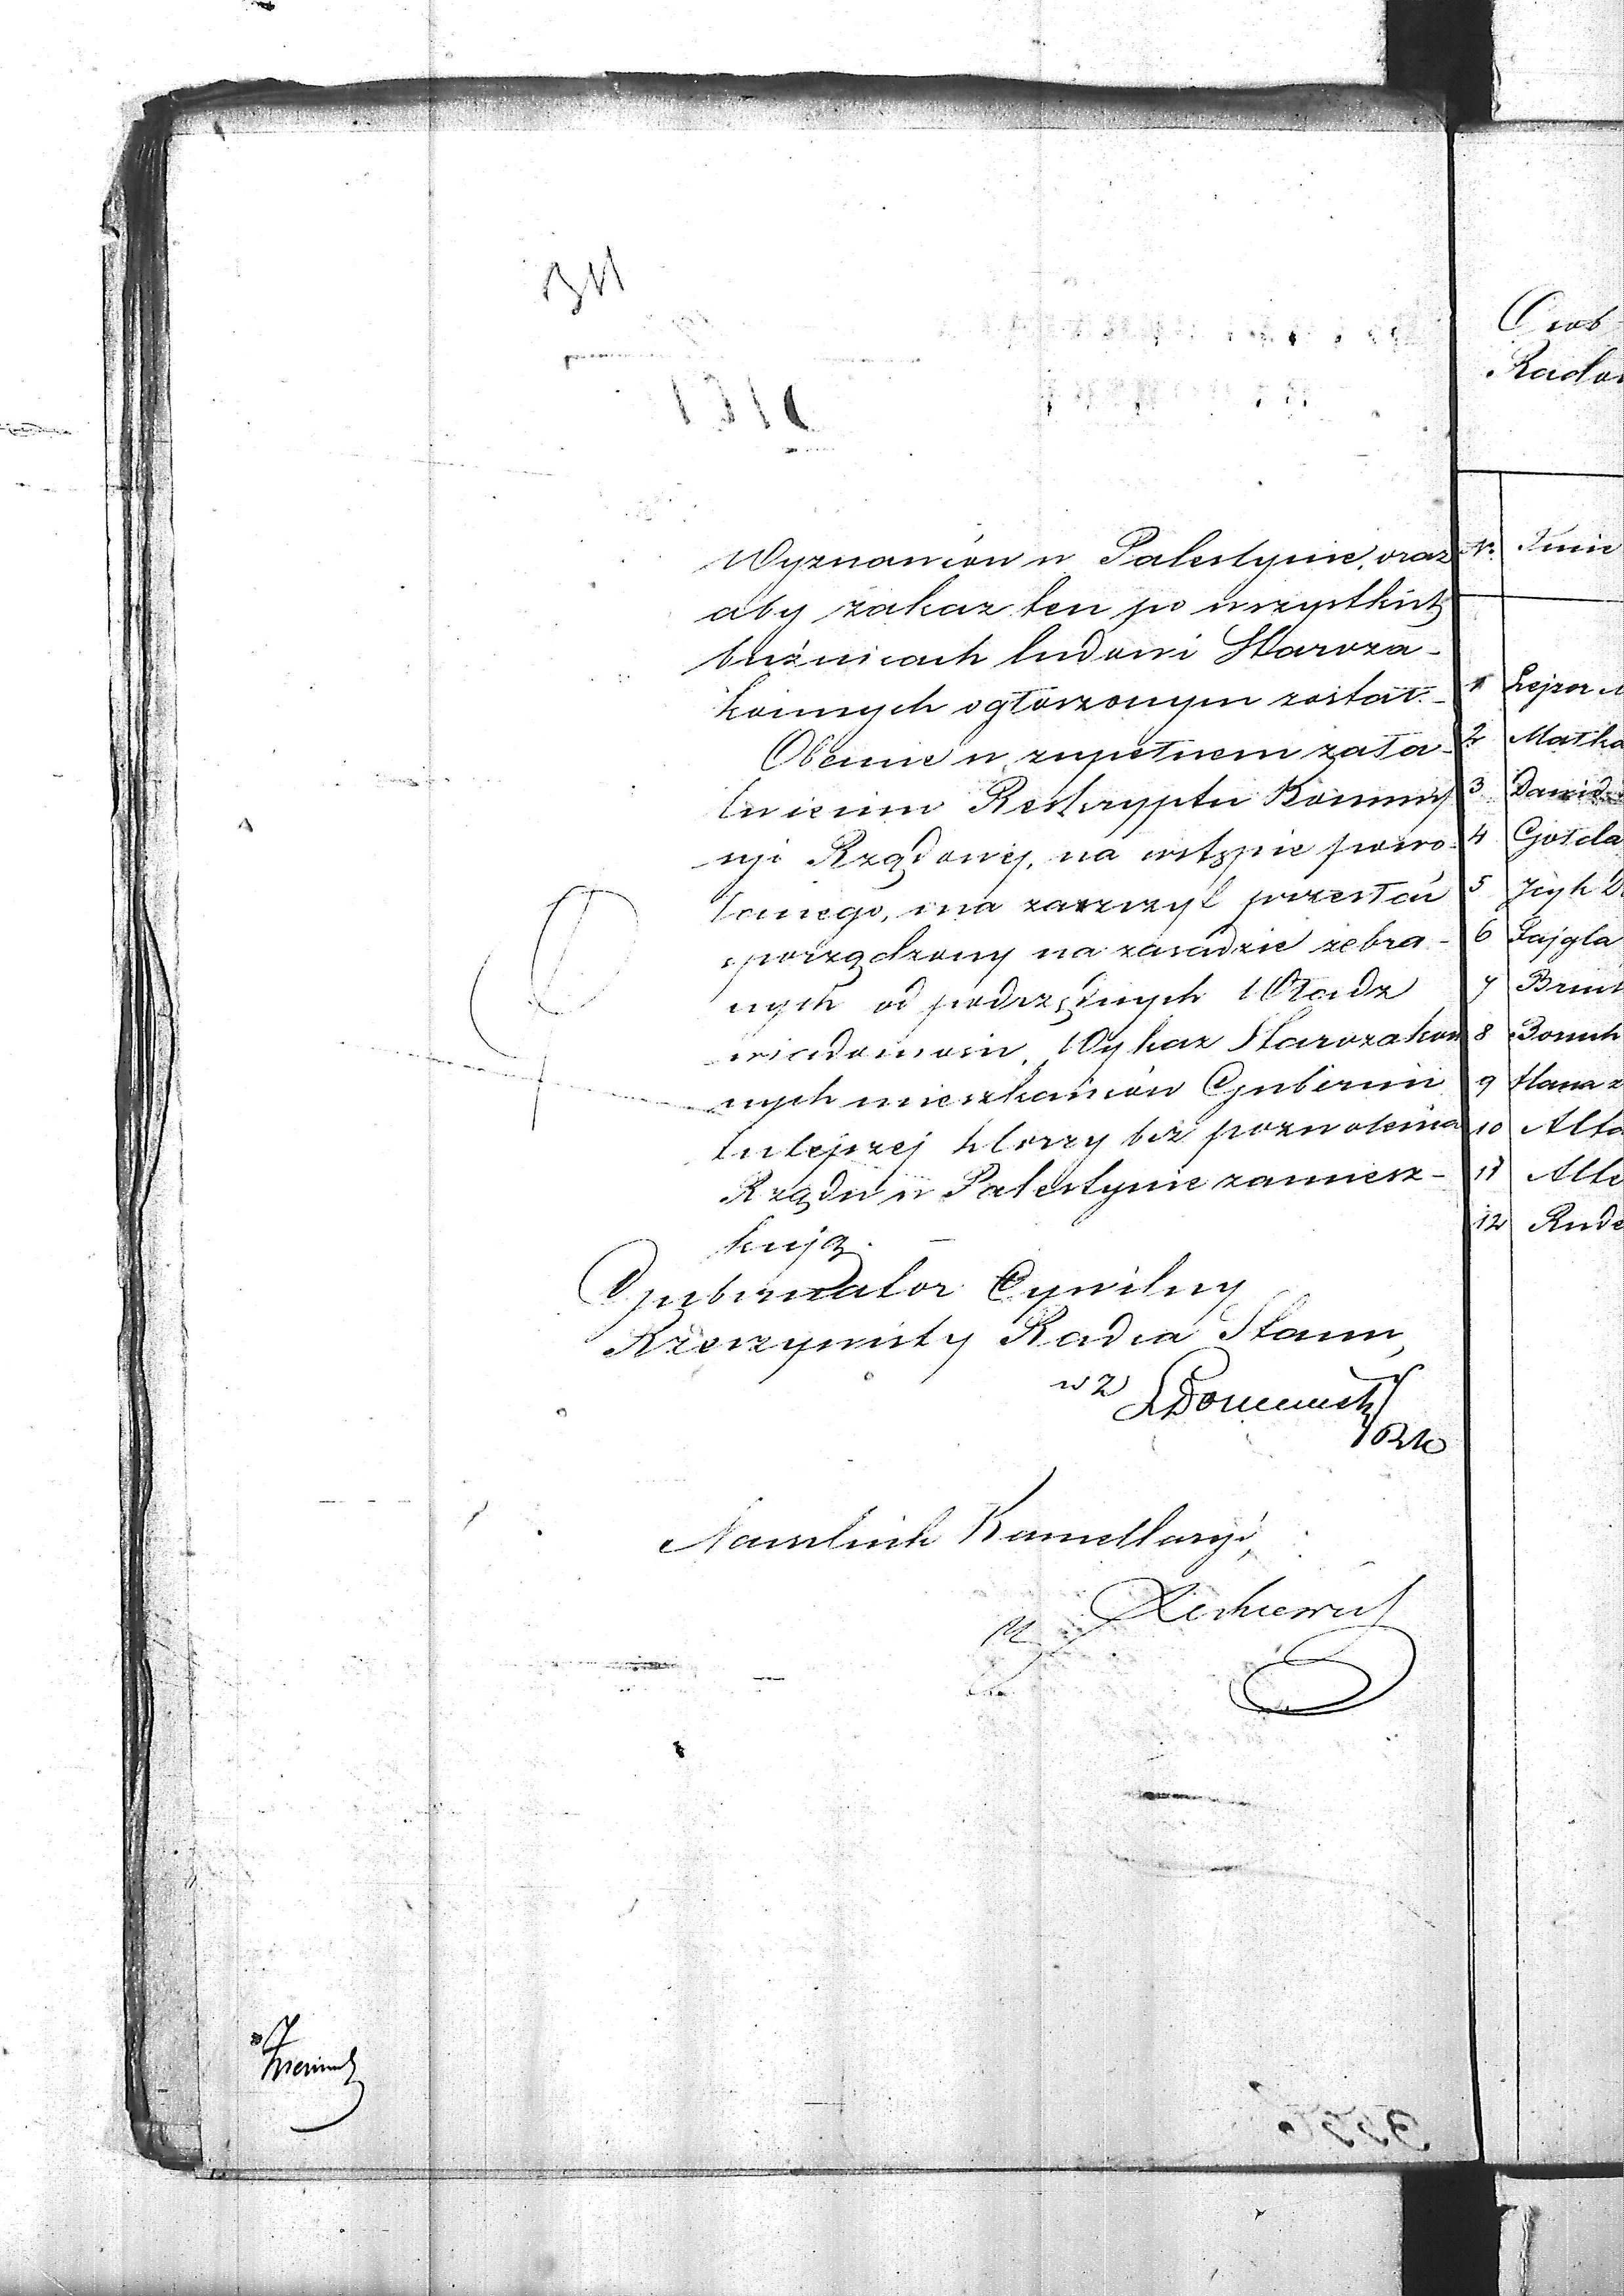 Wyznawców w Palestynie, oraz
aby zakaz ten po wszystkich
bużnicach ludowi Staroza-
konnych ogłoszonym został.-
Obecnie w zupełnem zała-
twieniu Reskryptu Kommis
syi Rządowej, na wstępie powo-
łanego, ma zaszczyt przesłać
sporządzony na zasadzie zebra-
nych od podrzędnych Władz
wiadomości, Wykaz Starozakon
nych mieszkańców Gubernii
tutejszej którzy bez pozwolenia
Rządu w Palestynie zamiesz-
kują.-
Gubernator Cywilny
Rzeczywisty Radca Stanu,
wz
Naczelnik Kancellaryi,
Osob
Rado
N. Imie
1 Lejzor
2 Matka
3 Dawid
4 Gołda
5 Icyk
6 Fajgla
7
8 Boruch
9 Hana
10 Alta
11 Alte
12 Rude